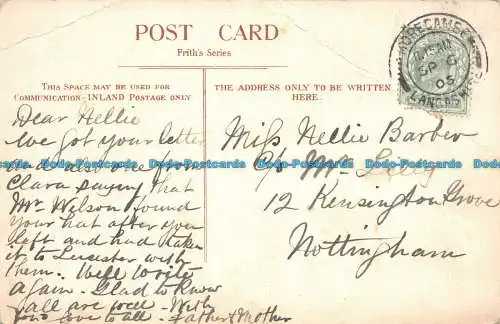 POST CARD
Frith's Series
THIS SPACE MAY BE USED FOR
COMMUNICATION - INLAND POSTAGE ONLY
THE ADDRESS ONLY TO BE WRITTEN
HERE.
MORECAMBE
SP 6
05
LANCASHIRE
Dear Nellie
We got your letter
and also one from
Clara saying that
Mr Wilson found
your hat after you
left and had taken
it to Leicester with
them. Will write
again. Glad to know
all are well. With
fond love to all. Father & Mother
Miss Nellie Barber
c/o Mr
12 Kensington Grove
Nottingham
Dodo-Postcards Dodo-Postcards Dodo-Postcards Dodo-Postcards